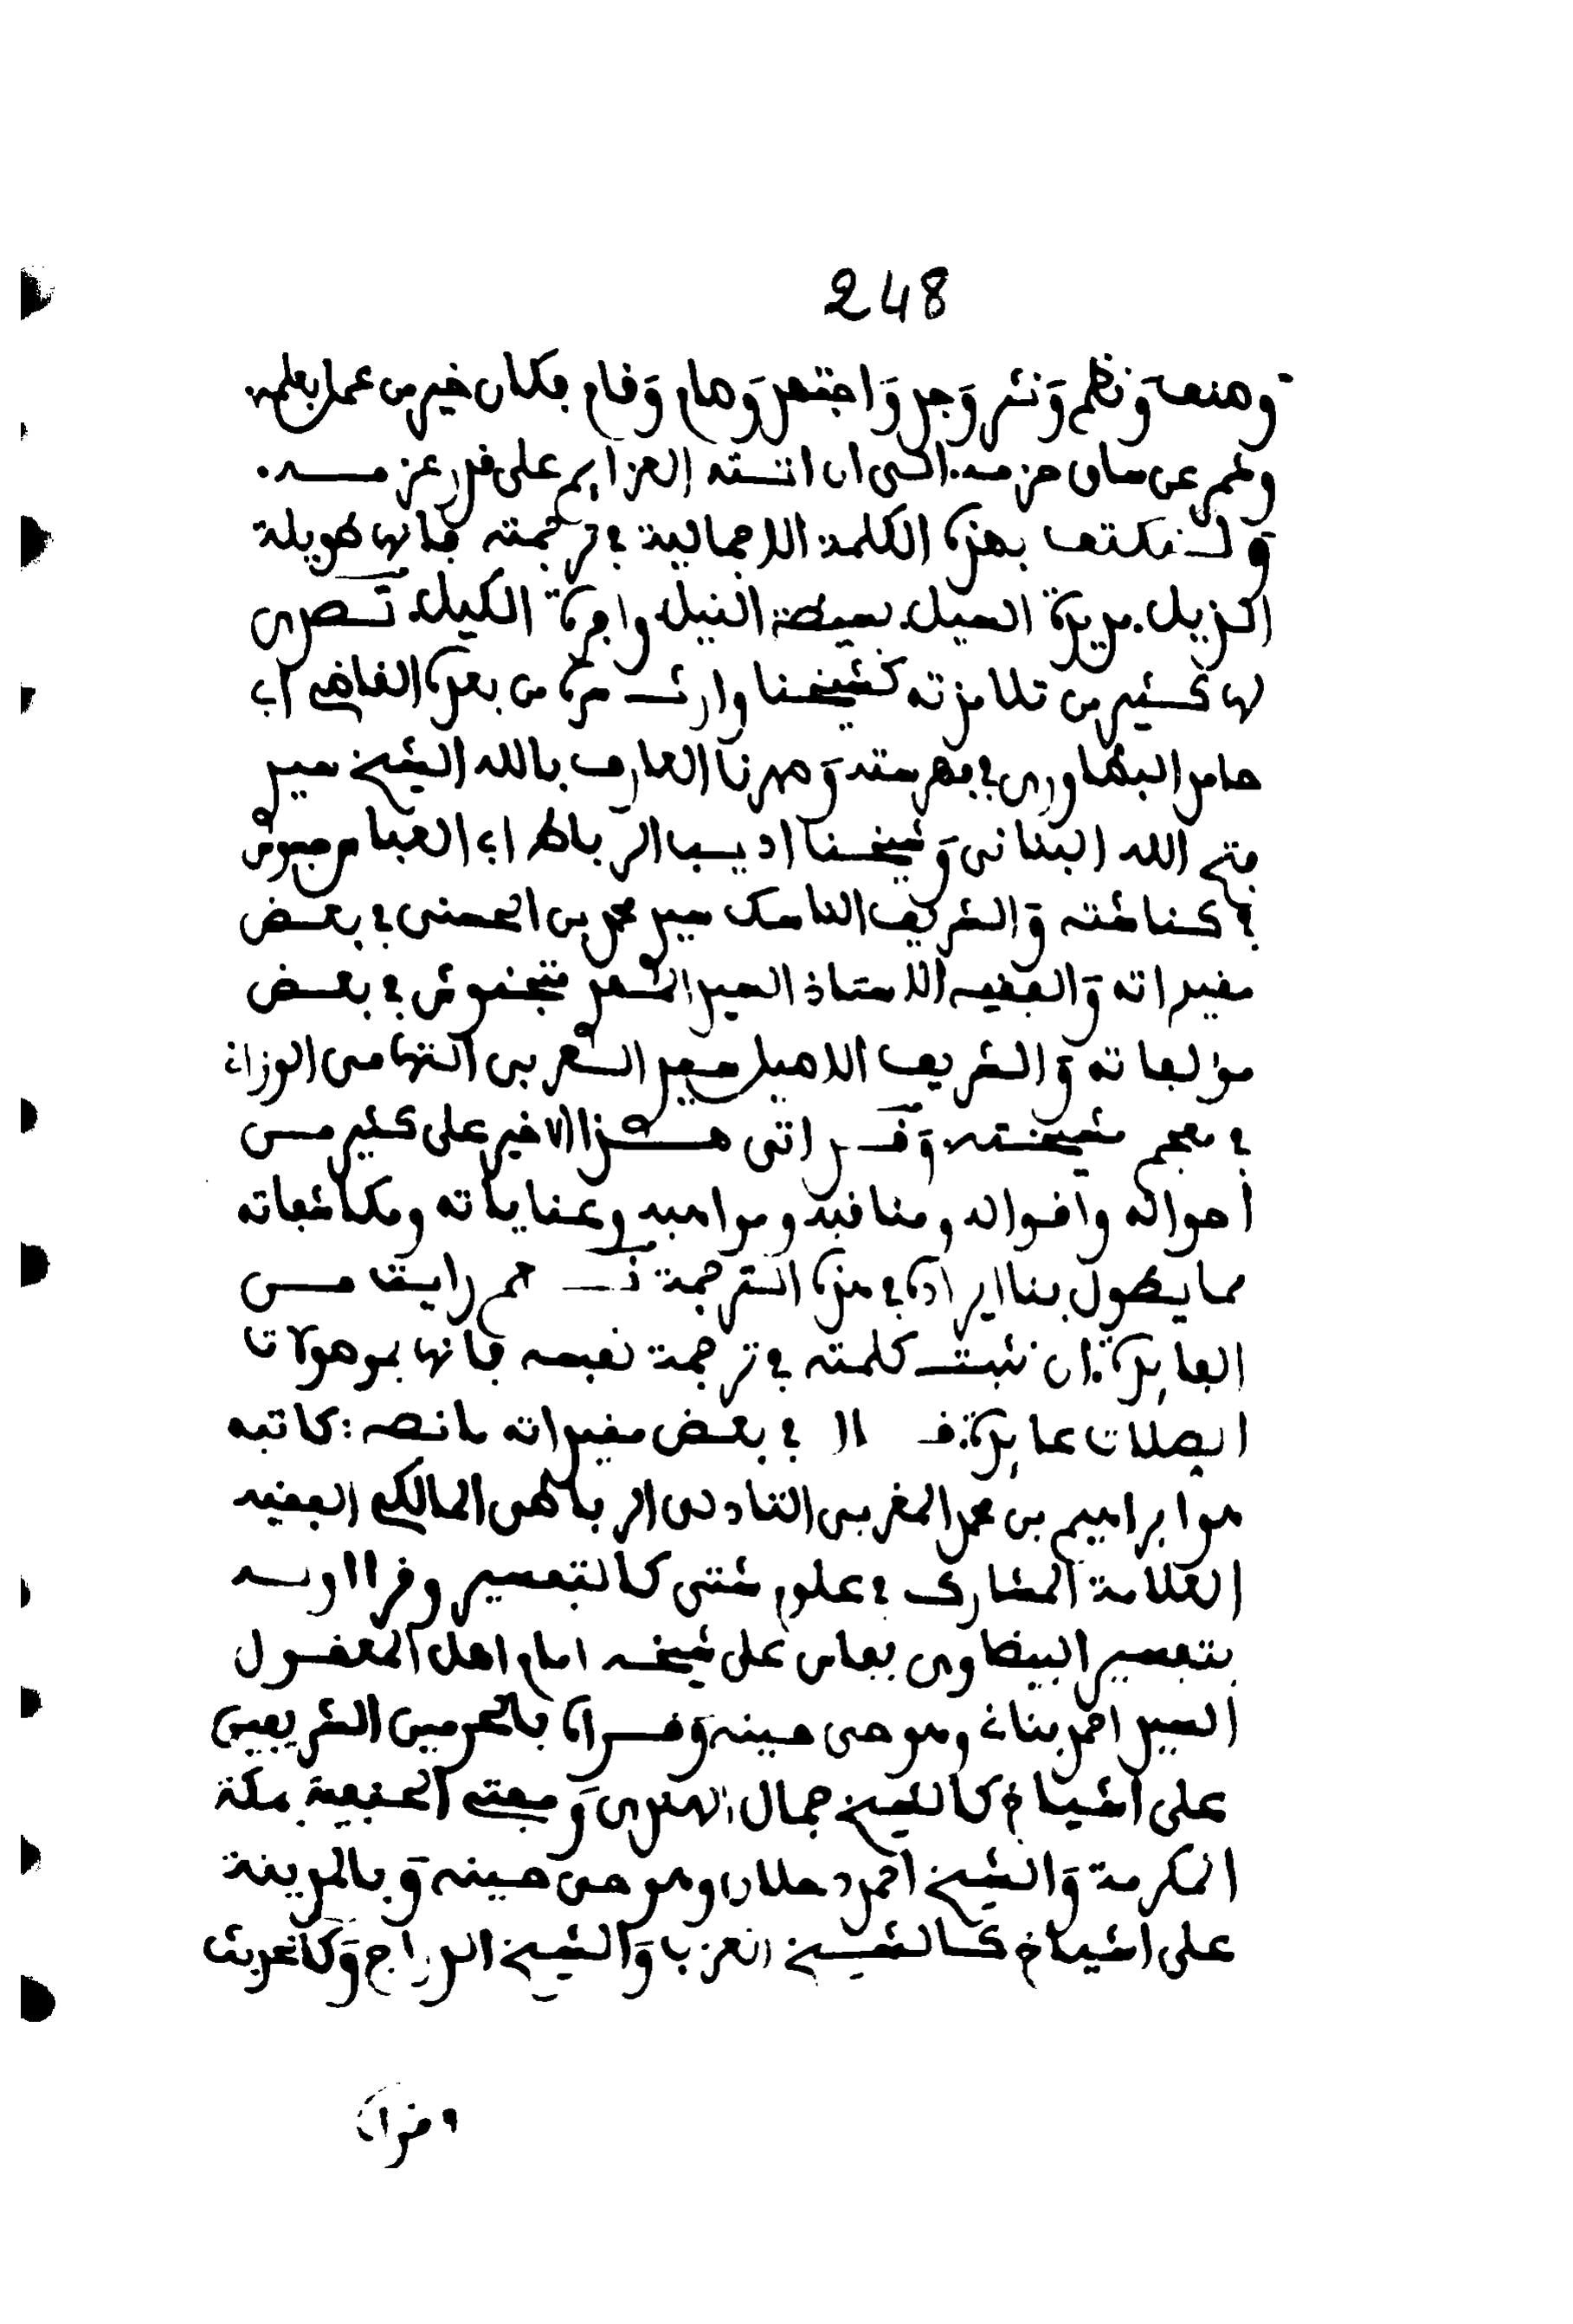 248
وصنف وَنظم وَنثر وَجد وَاجتهد وَصام وَقام فكان خير من عمل بعلمه
وشمر عن ساق حزمه الى ان اتته العزايم على قدر عزمــه.
وَلـنكتف بهذه الكلمة الاجمالية في ترجمته فانها طويلة
الذيل مديدة السيل بسيطة النيل وافرة الكيل تـصدى
لها كثير من تلامذته كشيخنا وارث سره من بعده القاضي أبي
حامد البطاوري في فهرسته وَصهرنا العارف بالله الشيخ سيد
فتح الله البناني وَشيخنا اديب الرباط ابي العباس جسوس
في كناشته وَالشريف الناسك سيد محمد بن الحسني في بعض
مقيداته وَالفقيه الاستاذ السيد المسعد متجنوش في بعض
مؤلفاته وَالشريف الاصيل سيد السعد بن التهامي الوزاني
في معجم مشيخته وَقد اتى هـذا الاخير على كثير مـن
أحواله واقواله ومناقبه ومواهبه وعناياته ومكاشفاته
مما يطول بنا ايراده في هذه الترجمة نـعم رايت مـن
الفايدة ان نثبت كلمته في ترجمة نفسه فانها بموصولات
الصلات عايدة قـال في بعض مقيداته ما نصه: كاتبه
هو ابراهيم بن محمد المغربي التادلي الرباطي المالكي الفقيه
العلامة المشارك في علوم شتى كالتفسير وقرا اولـه
بتفسير البيضاوي بفاس على شيخه امام اهل المعقـول
السيد احمد بناني وهو حي حينه وَقـراه بالحرمين الشريفين
على اشياخ كالشيخ جمال الهندي وَمفتي الحنفية بمكة
المكرمة وَالشيخ احمد دحلان وهو حي حينه وَبالمدينة
على اشياخ كـالشيخ العزب وَالشيخ الدراج وَكالحديث
وقراه